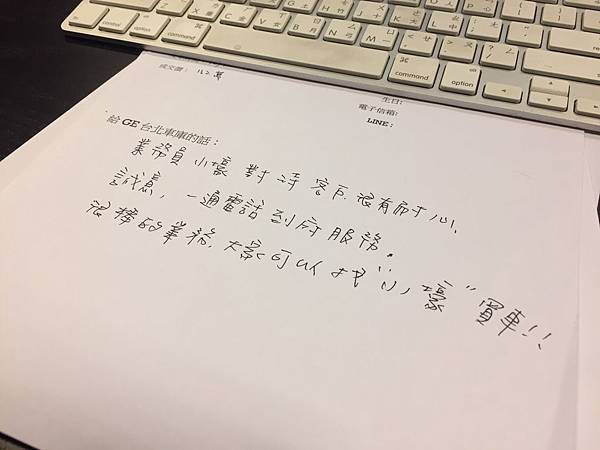 成交價：
生日:
電子信箱:
LINE:
給 GE 台北車庫的話：
業務員小壕 對待客戶很有耐心、
誠意，一通電話到府服務。
很棒的業務，大家可以找"小壕"買車!!
control
option
command
command
option
control